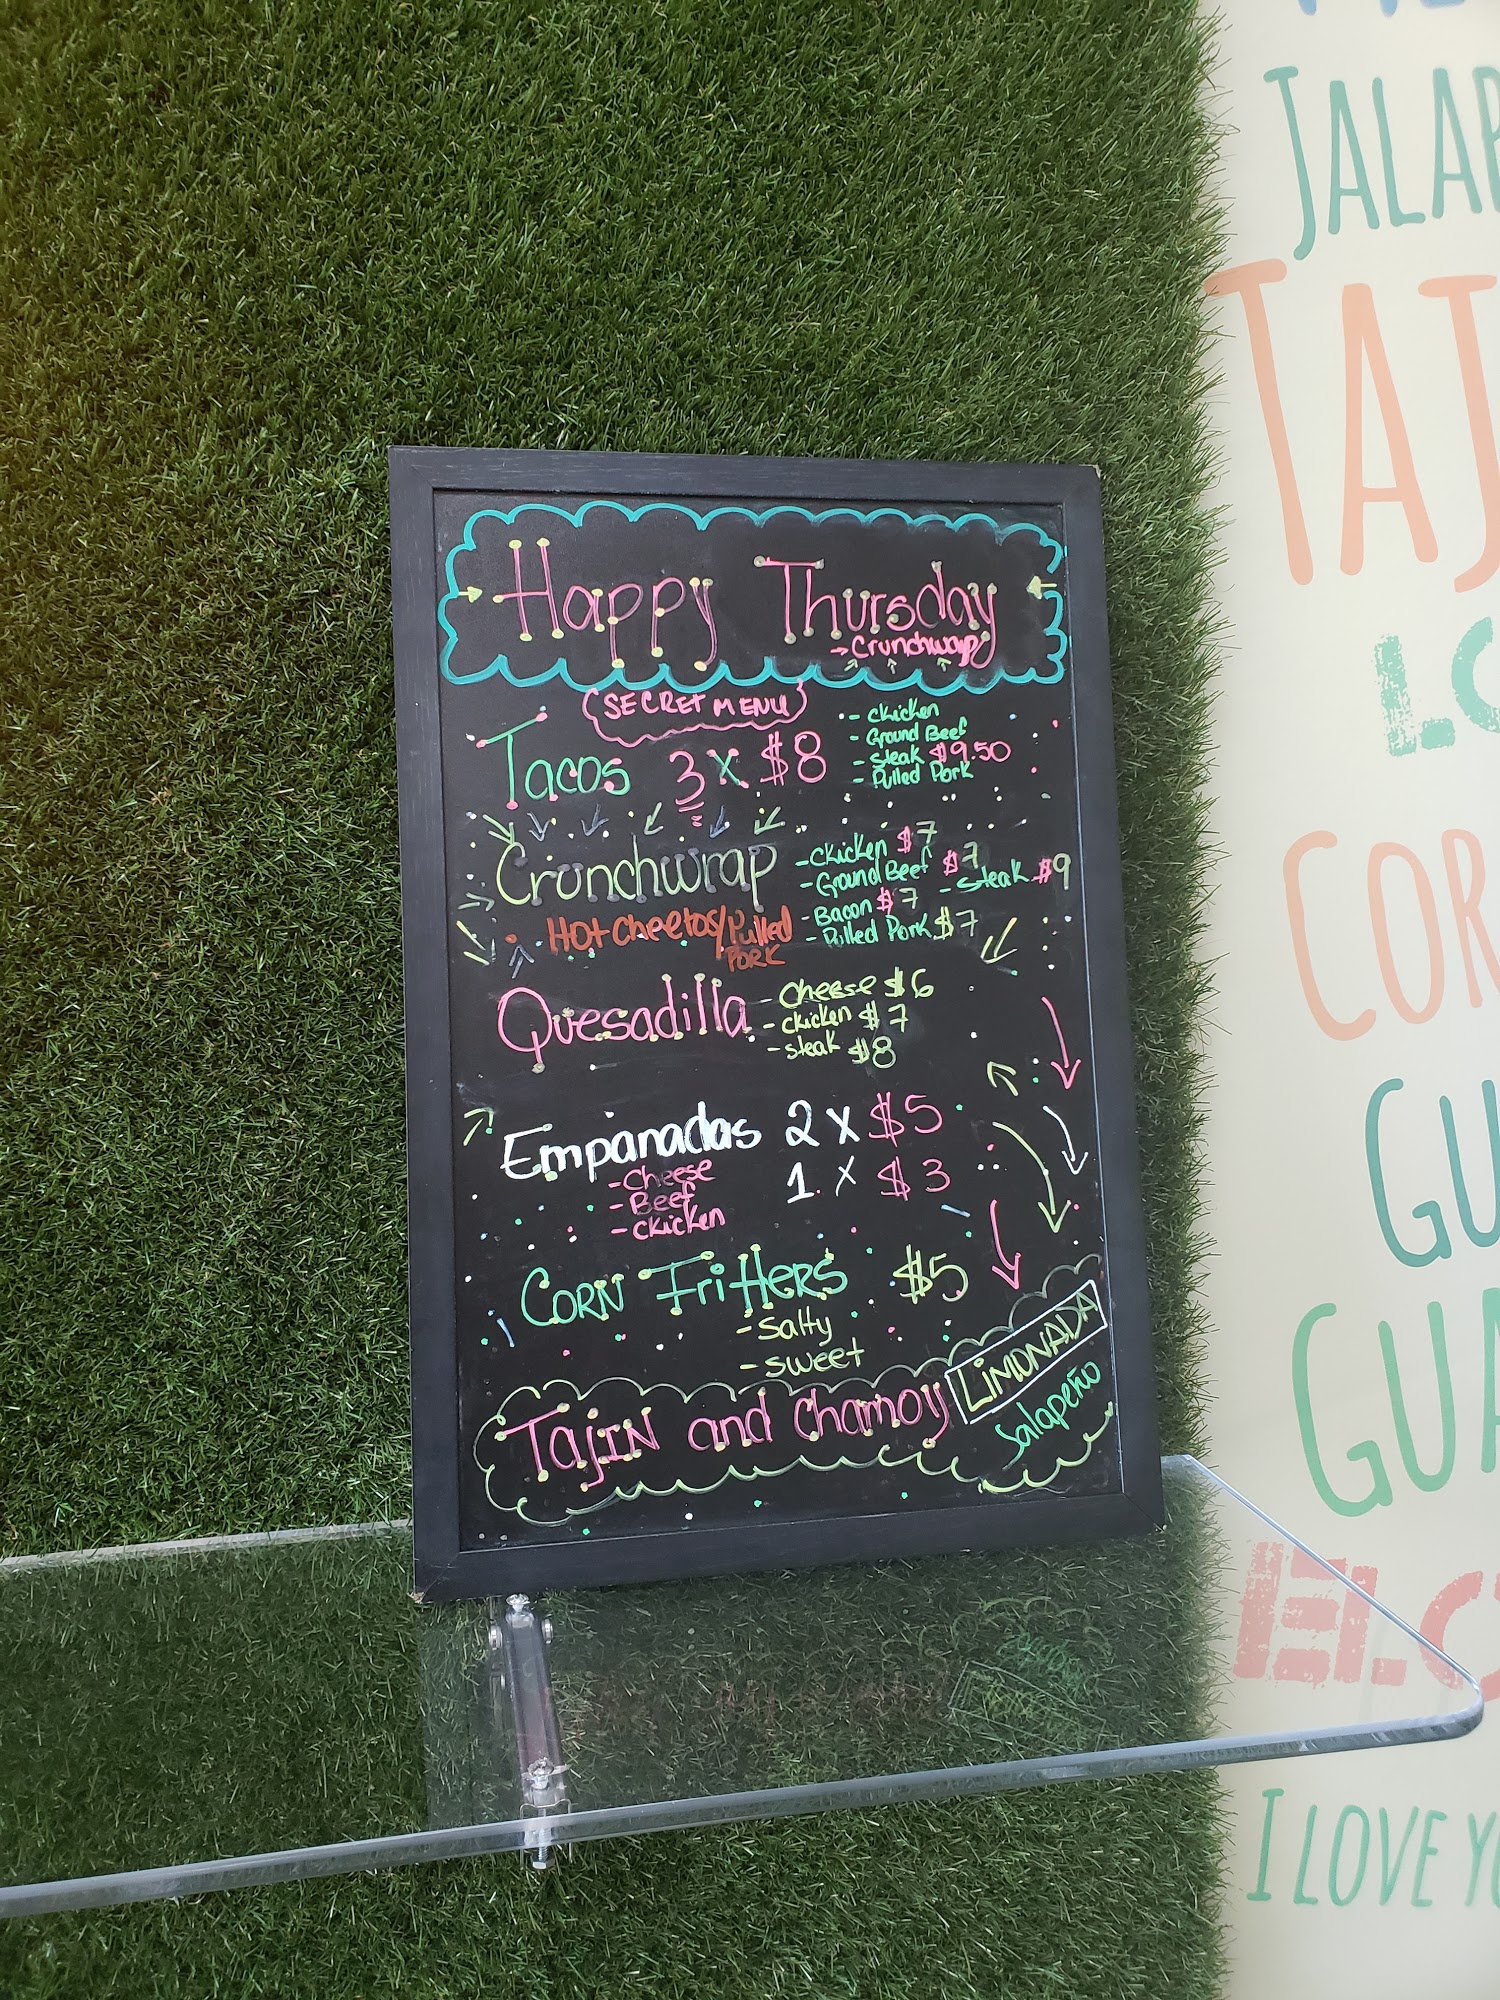 Happy Thursday
→ Crunchwrap
(SECRET MENU)
Tacos 3 x $8
- Chicken
- Ground Beef
- Steak $9.50
- Pulled Pork
Crunchwrap
- Chicken $7
- Ground Beef $7
- Steak $9
- Bacon $7
- Pulled Pork $7
Hot Cheetos/Pulled
PORK
Quesadilla
- Cheese $6
- Chicken $7
- Steak $8
Empanadas 2 x $5
1 x $3
- Cheese
- Beef
- Chicken
CORN FriTTERS $5
- Salty
- Sweet
TajIN and Chamoy
LiMONADA
Jalapeño
TAJ
LO
COR
GU
GUA
EL
I LOVE